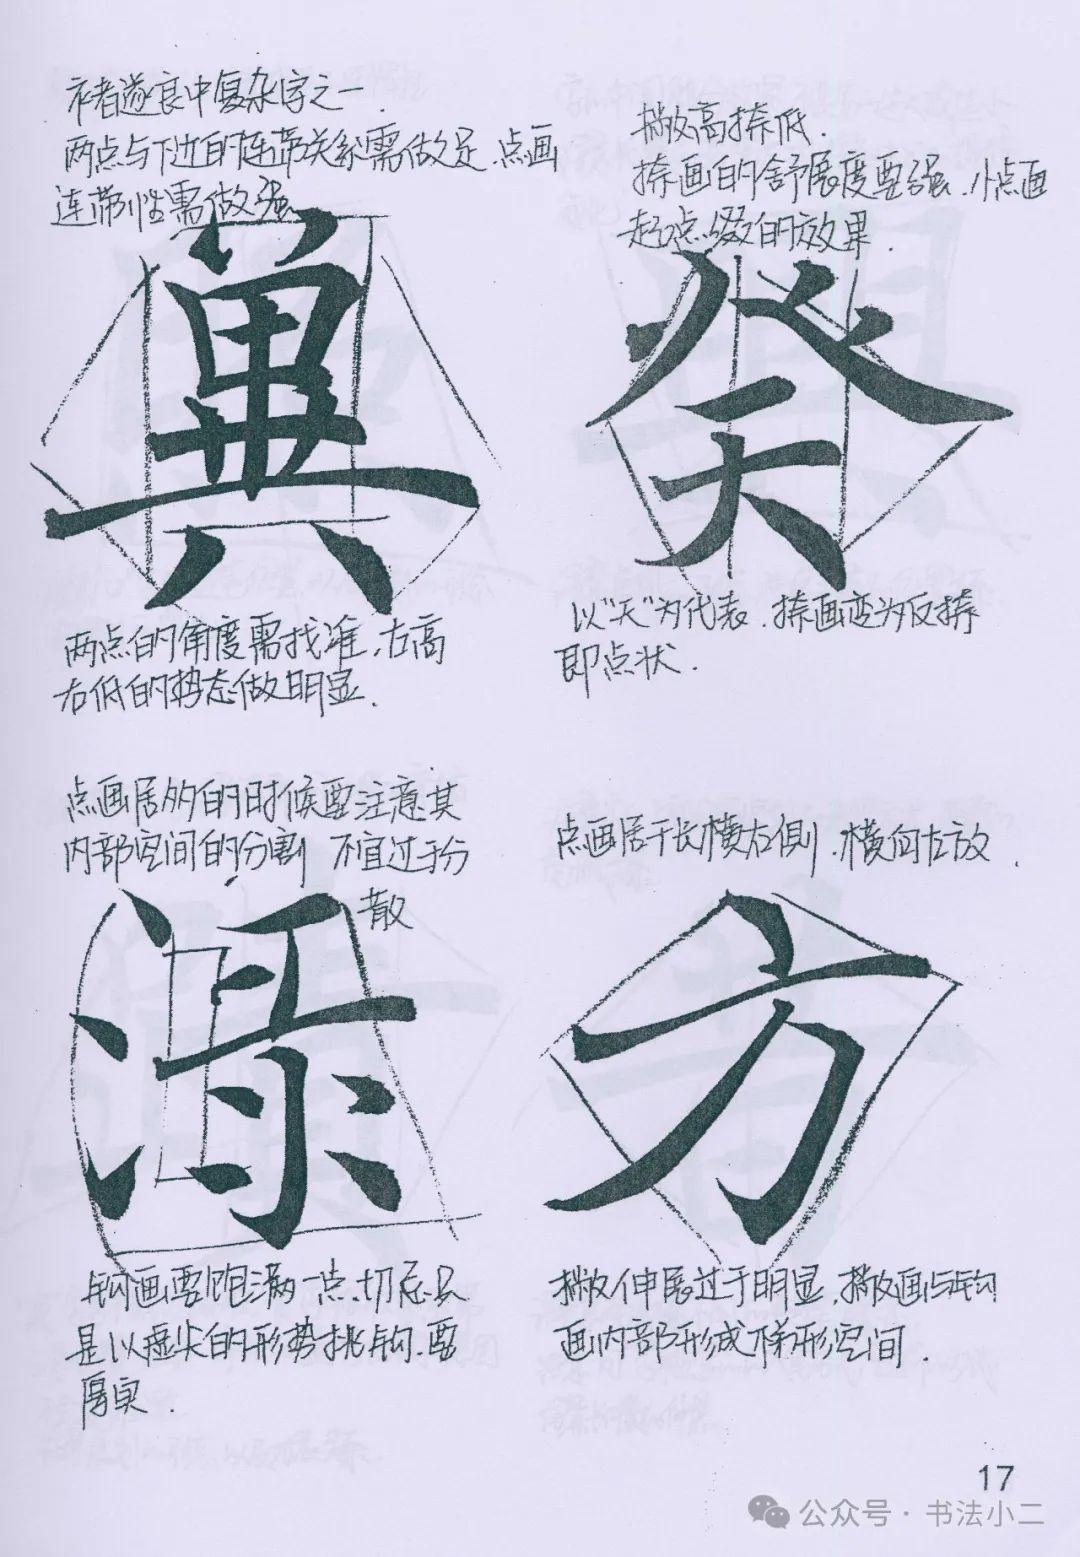 褚遂良中复杂字之一.
两点与下边的连带关系需做足.点画
连带性需做强
冀
两点的角度需找准.左高
右低的势态做明显.
撇高捺低.
捺画的舒展度要强.小点画
起点缀的效果.
癸
以"天"为代表.捺画变为反捺
即点状.
点画居多的时候要注意其
内部空间的分割 不宜过于分
散
渌
钩画要饱满一点.切忌只
是以虚尖的形势挑钩.要
厚实.
点画居于长横右侧.横向左放.
方
撇伸展过于明显.撇画与钩
画内部形成梯形空间.
17
公众号·书法小二